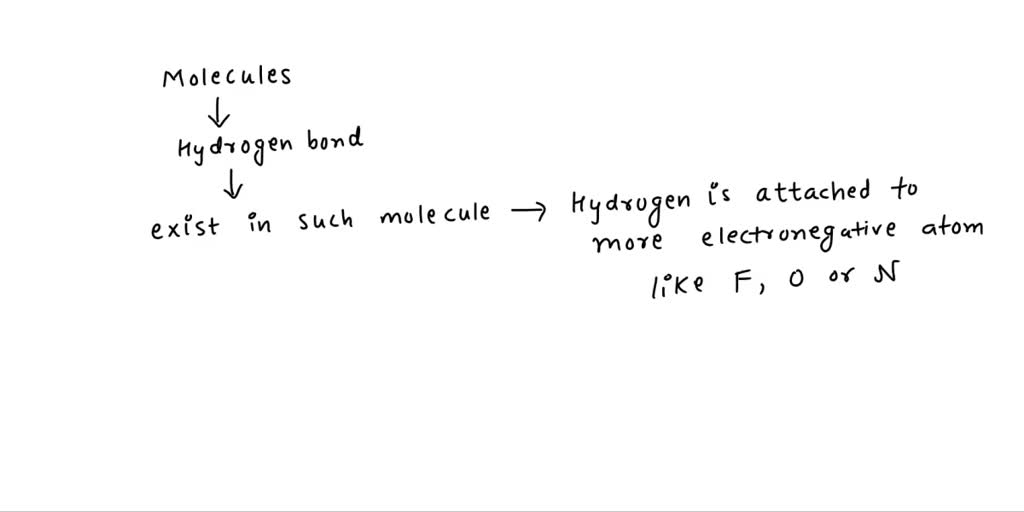 Molecules
↓
Hydrogen bond
↓
exist in such molecule → Hydrogen is attached to
more electronegative atom
like F, O or N